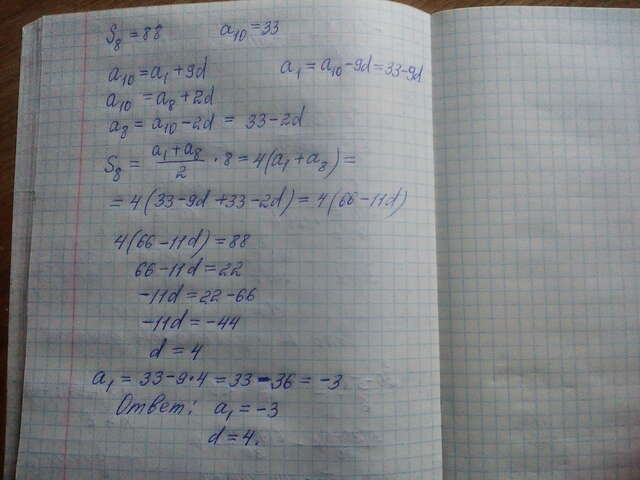 S₈ = 88 a₁₀ = 33
a₁₀ = a₁ + 9d a₁ = a₁₀ - 9d = 33 - 9d
a₁₀ = a₈ + 2d
a₈ = a₁₀ - 2d = 33 - 2d
S₈ = (a₁ + a₈)/2 · 8 = 4(a₁ + a₈) =
= 4(33 - 9d + 33 - 2d) = 4(66 - 11d)
4(66 - 11d) = 88
66 - 11d = 22
-11d = 22 - 66
-11d = -44
d = 4
a₁ = 33 - 9·4 = 33 - 36 = -3
Ответ: a₁ = -3
d = 4.